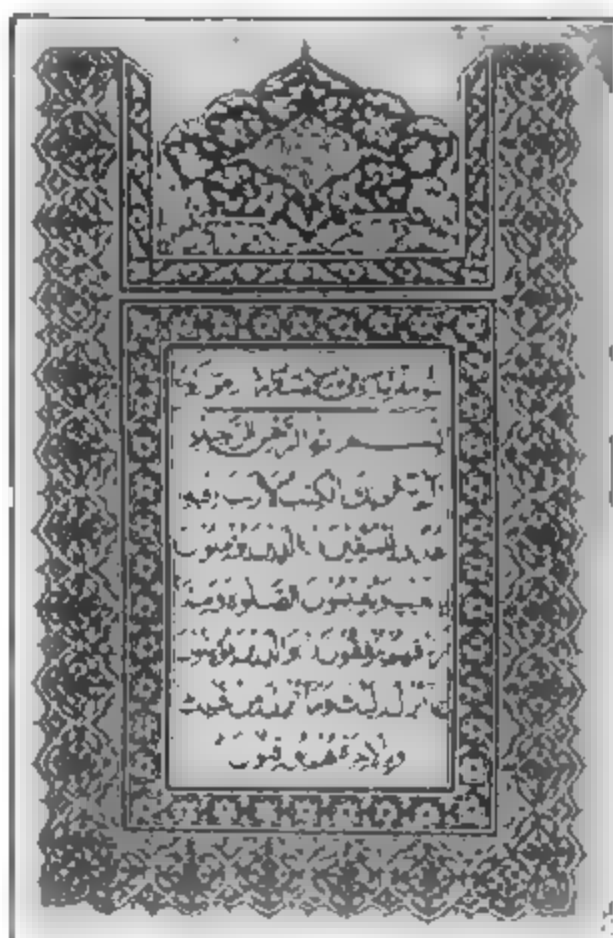 بسم الله الرحمن الرحيم
الم ذلك الكتب لا ريب فيه
هدى للمتقين الذين يؤمنون
بالغيب ويقيمون الصلوة ومما
رزقنهم ينفقون والذين يؤمنون
بما انزل اليك وما انزل من قبلك
وبالاخرة هم يوقنون